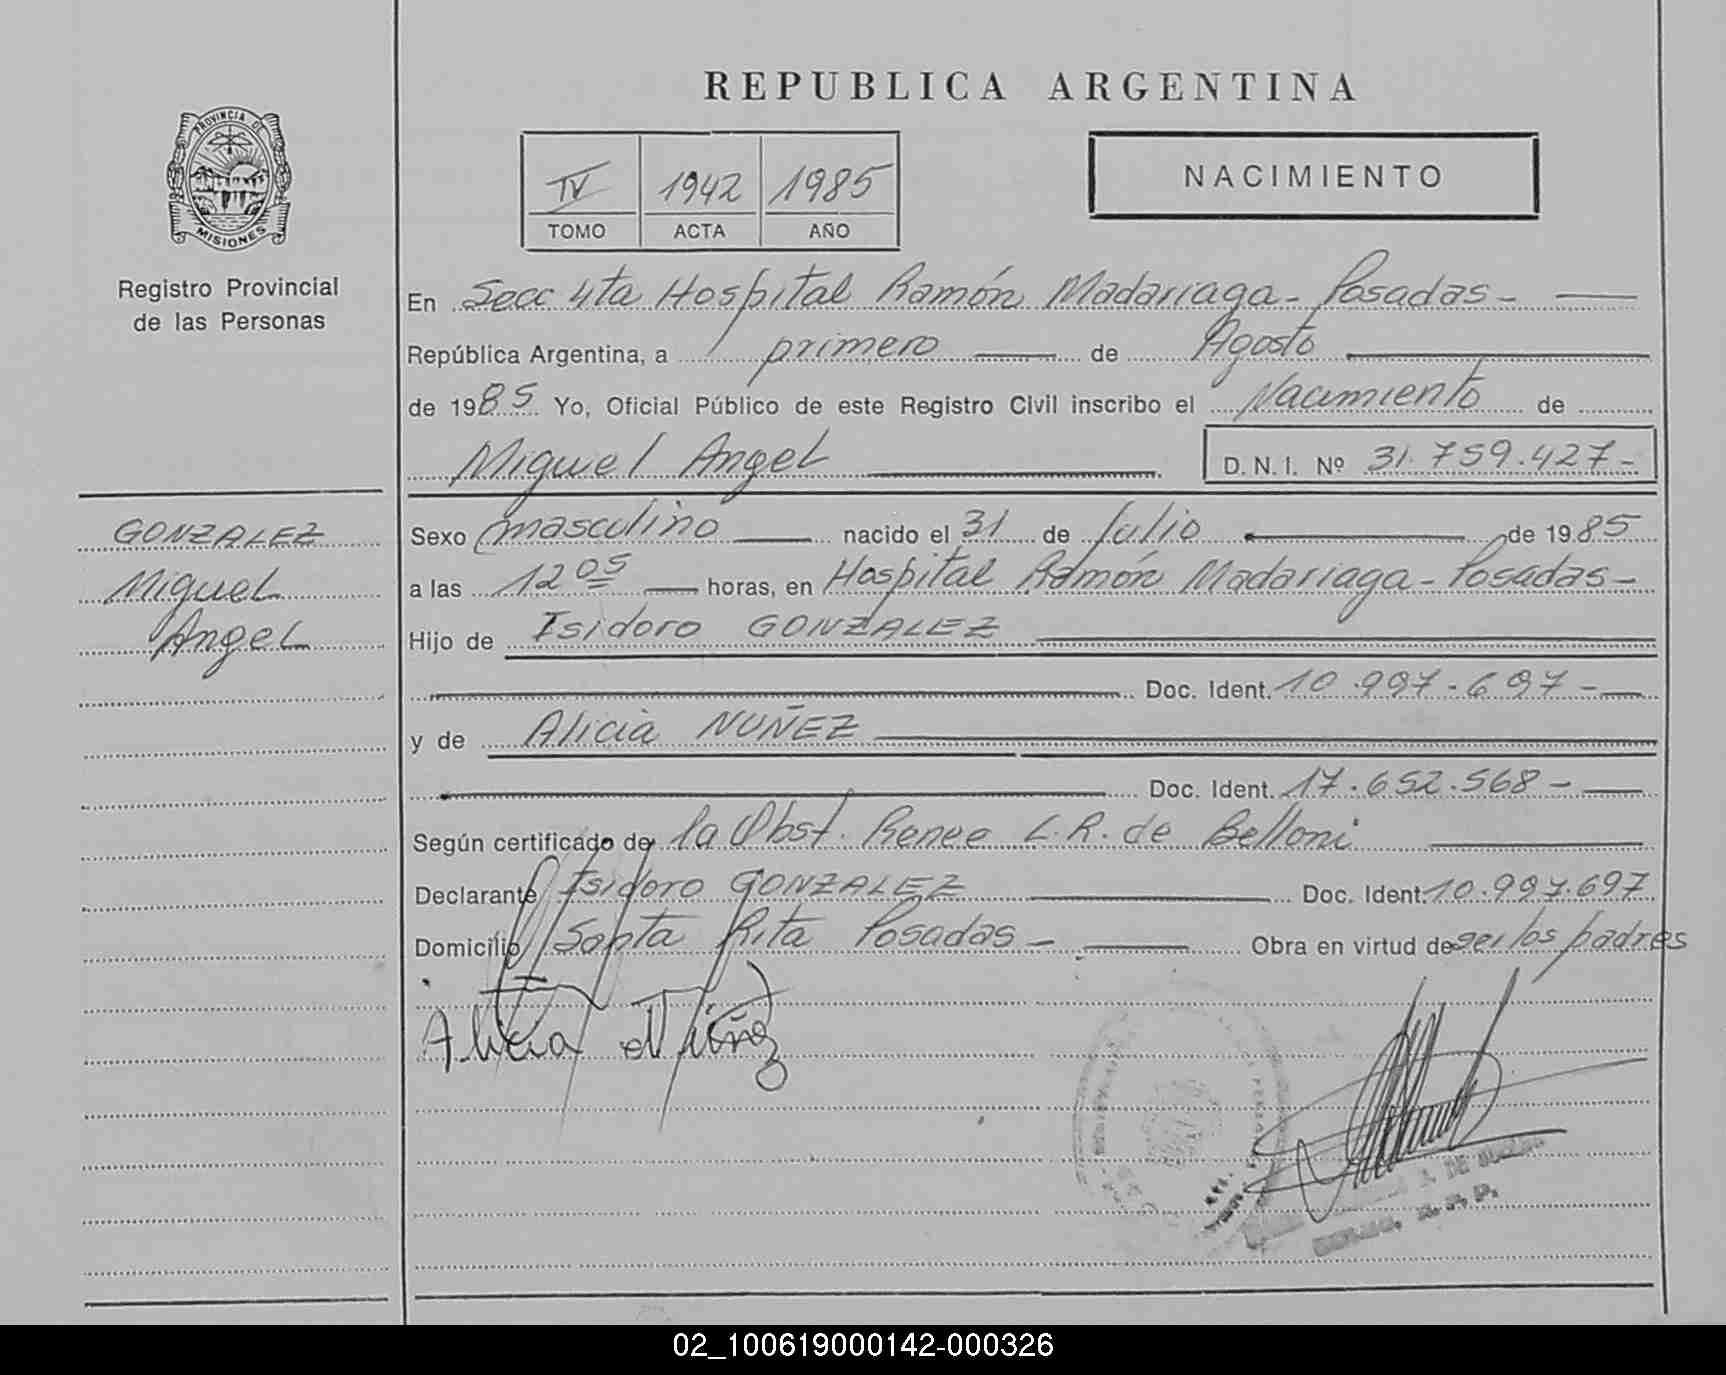 REPUBLICA ARGENTINA
PROVINCIA DE
MISIONES
Registro Provincial
de las Personas
IV 1942 1985
TOMO ACTA AÑO
NACIMIENTO
En Secc 4ta Hospital Ramón Madariaga - Posadas -
República Argentina, a primero de Agosto
de 1985 Yo, Oficial Público de este Registro Civil inscribo el Nacimiento de
Miguel Angel D.N.I. Nº 31.759.427-
GONZALEZ
Miguel
Angel
Sexo masculino nacido el 31 de Julio de 1985
a las 12 05 horas, en Hospital Ramón Madariaga - Posadas -
Hijo de Isidoro GONZALEZ
Doc. Ident. 10.997.697-
y de Alicia NUÑEZ
Doc. Ident. 17.652.568-
Según certificado de la Obst. Renee L.R. de Belloni
Declarante Isidoro GONZALEZ Doc. Ident. 10.997.697
Domicilio Santa Rita Posadas - Obra en virtud de ser los padres
Alicia Núñez
02_100619000142-000326